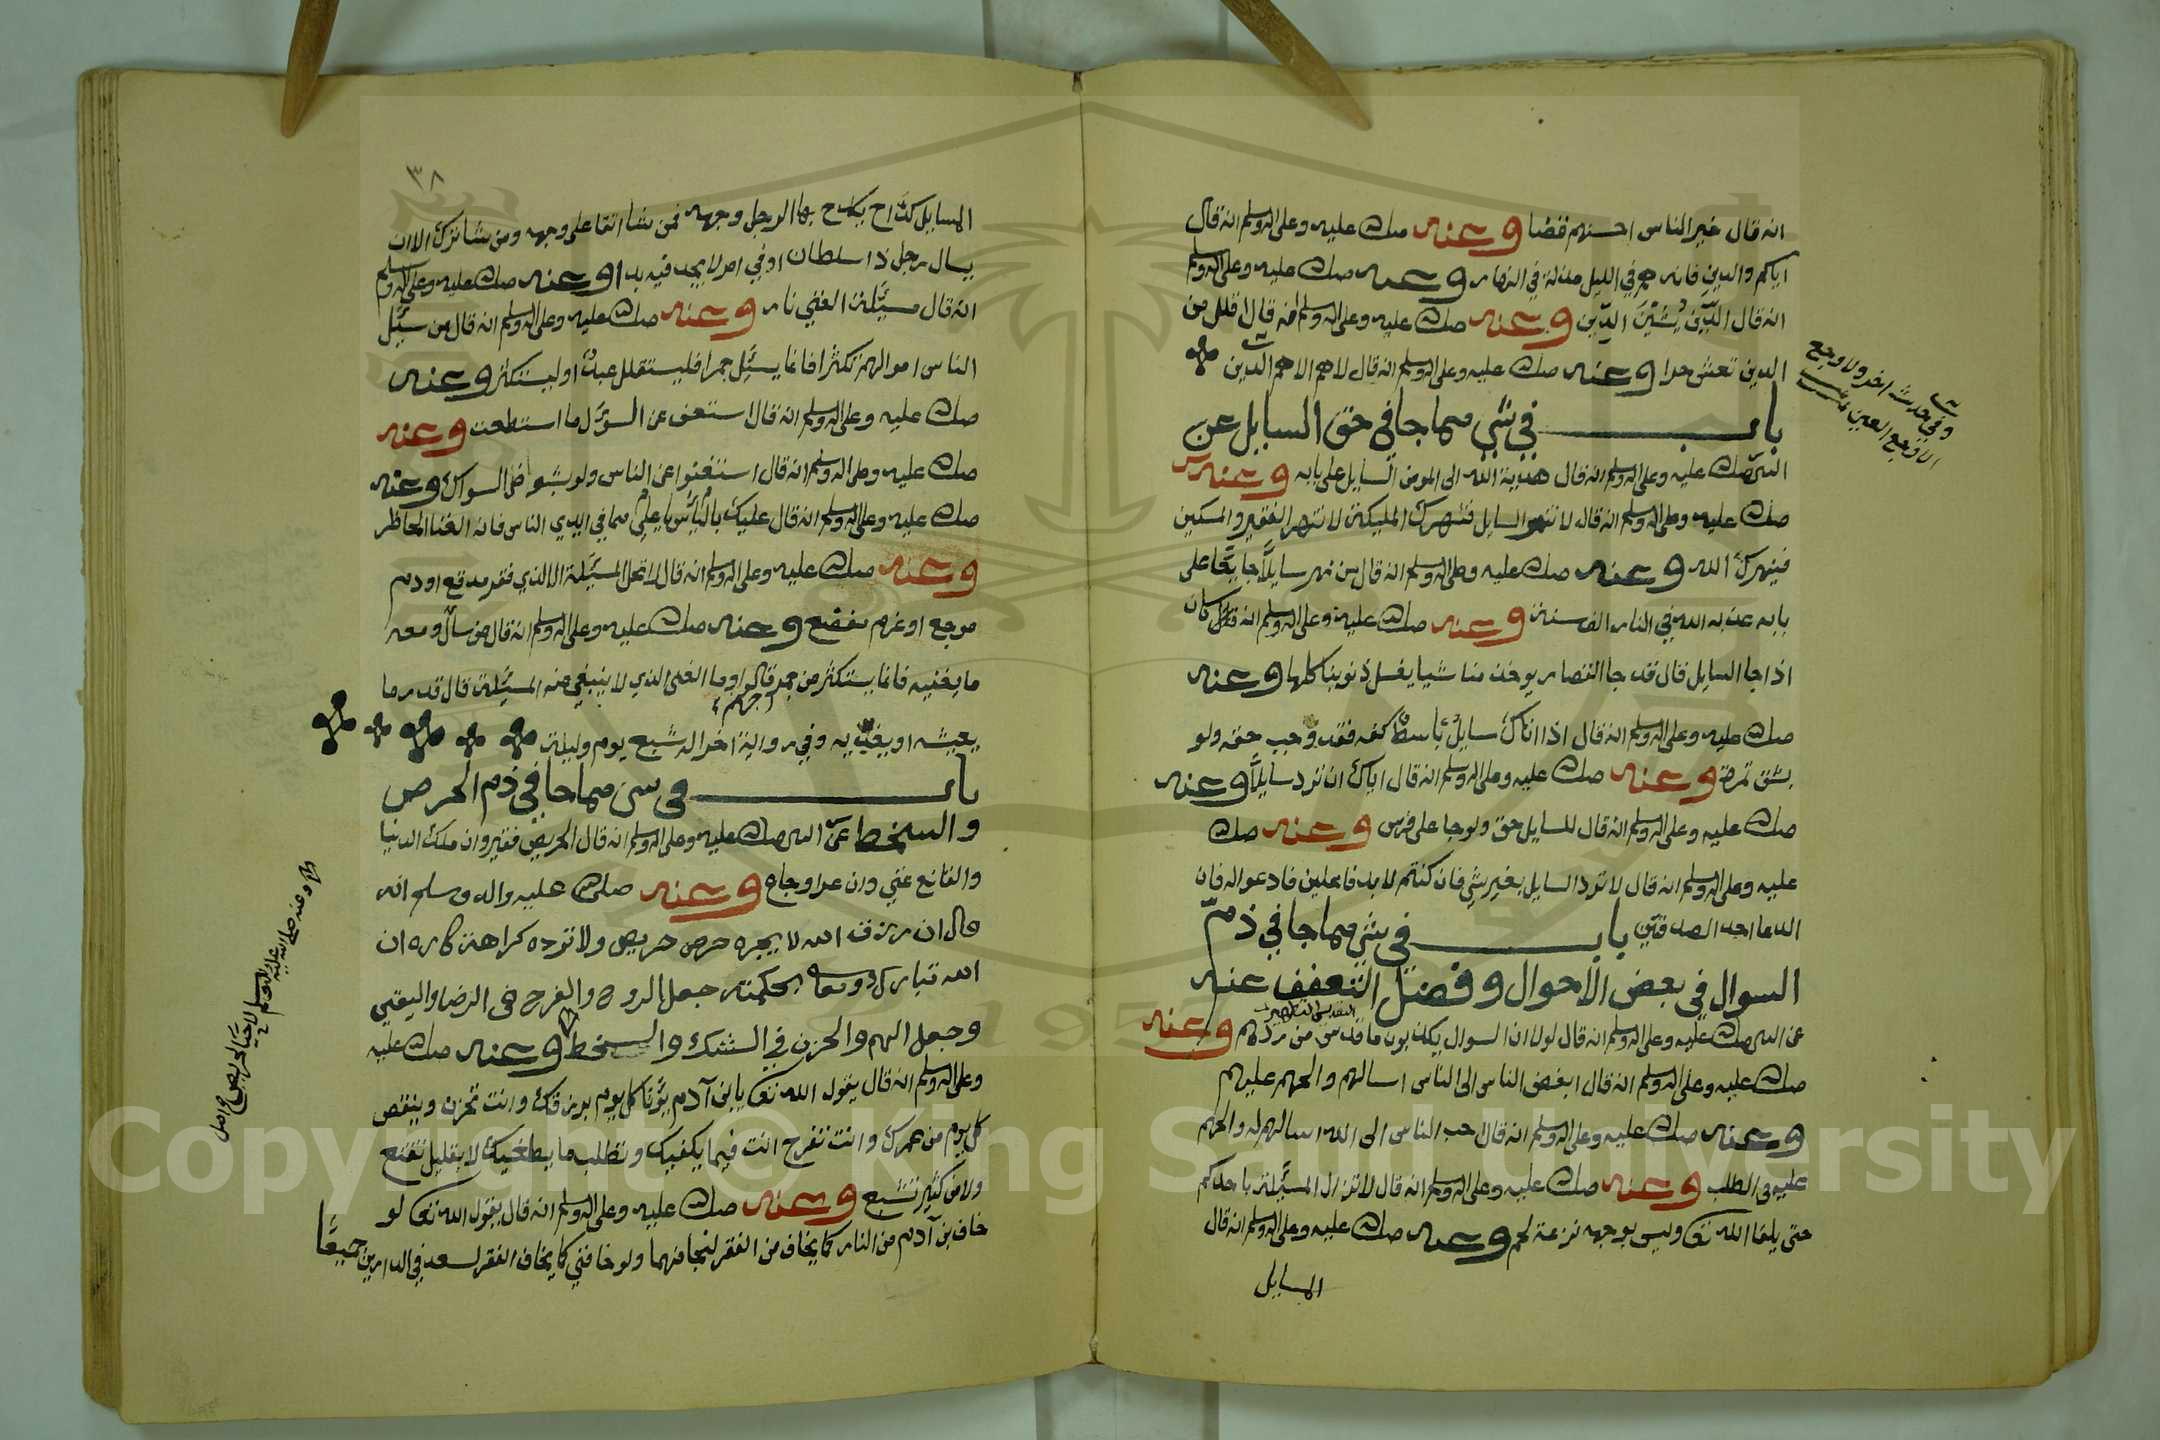 انه قال خير الناس احسنهم قضا وعنه صلى الله عليه وعلى اله وسلم انه قال
اياكم والدين فانه هم في الليل مذلة في النهار وعنه صلى الله عليه وعلى اله وسلم
انه قال الدّين يُشِيْنُ الدِّين وعنه صلى الله عليه وعلى اله وسلم انه قال اقلل من
الدين تعش حرا وعنه صلى الله عليه وعلى اله وسلم انه قال لا هم الا هم الدين
وفي حديث اخر ولا وجع
الا وجع العين
باب في شي مما جا في حق السايل عن
النبي صلى الله عليه وعلى اله وسلم انه قال هدية الله الى المومن السايل على بابه وعنه
صلى الله عليه وعلى اله وسلم انه قال لا تنهر السايل فتنهرك المليكة لا تنهر الفقير والمسكين
فينهرك الله وعنه صلى الله عليه وعلى اله وسلم انه قال من نهر سايلاً جايعًا على
بابه عذبه الله في النار الف سنة وعنه صلى الله عليه وعلى اله وسلم انه كان
اذا جا السايل قال قد جا القصار يوخذ منا شيا يغسل ذنوبنا كلها وعنه
صلى الله عليه وعلى اله وسلم انه قال اذا اتاك سايلٌ باسطٌ كفه فقد وجب حقه ولو
بشق تمرة وعنه صلى الله عليه وعلى اله وسلم انه قال اياك ان ترد سايلاً وعنه
صلى الله عليه وعلى اله وسلم انه قال للسايل حق ولو جا على فرس وعنه صلى الله
عليه وعلى اله وسلم انه قال لا ترد السايل بغير شي فان كنتم لا بد فاعلين فادعوا له فان
الدعا احد الصدقتين باب في شي مما جا في ذمّ
السوال في بعض الاحوال وفضل التعفف عنه
عن النبي صلى الله عليه وعلى اله وسلم انه قال لولا ان السوال يكذبون ما قدس من ردهم وعنه
صلى الله عليه وعلى اله وسلم انه قال ابغض الناس الى الناس اسالهم والحهم عليهم
وعنه صلى الله عليه وعلى اله وسلم انه قال احب الناس الى الله اسالهم له والحهم
عليه في الطلب وعنه صلى الله عليه وعلى اله وسلم انه قال لا تزال المسئلة باحدكم
حتى يلقا الله تعالى وليس بوجهه نزعة لحم وعنه صلى الله عليه وعلى اله وسلم انه قال
المسايل
٣٨
المسايل كداح يكدح بها الرجل وجهه فمن شا اتقا على وجهه ومن شا ترك الا ان
يسال رجل ذا سلطان او في امر لا يجد فيه بدا وعنه صلى الله عليه وعلى اله وسلم
انه قال مسئلة الغني نار وعنه صلى الله عليه وعلى اله وسلم انه قال من سئل
الناس اموالهم تكثرا فانما يسئل جمرا فليستقلل عبدٌ او ليستكثر وعنه
صلى الله عليه وعلى اله وسلم انه قال استعف عن السؤل ما استطعت وعنه
صلى الله عليه وعلى اله وسلم انه قال استغنوا عن الناس ولو بشوص السواك وعنه
صلى الله عليه وعلى اله وسلم انه قال عليك بالياس يا علي مما في ايدي الناس فانه الغنا الحاظر
وعنه صلى الله عليه وعلى اله وسلم انه قال لا تحل المسئلة الا لذي فقر مدقع او دم
موجع او غرم مفضع وعنه صلى الله عليه وعلى اله وسلم انه قال من سال ومعه
ما يغنيه فانما يستكثر من جمر قالوا وما الغنى الذي لا ينبغي منه المسئلة قال قدر ما
جهنم
يعيشه او يغديه وفي رواية اخر اله شبع يوم وليلة
باب في شي مما جا في ذم الحرص
والسخط عن النبي صلى الله عليه وعلى اله وسلم انه قال الحريص فقير وان ملك الدنيا
والقانع غني وان عرا وجاع وعنه صلى الله عليه واله وسلم انه
قال ان رزق الله لا يجره حرص حريص ولا ترده كراهة كاره ان
الله تبارك وتعالى بحكمته جعل الروح والفرح في الرضا واليقين
وجعل الهم والحزن في الشك والسخط وعنه صلى الله عليه
وعلى اله وسلم انه قال يقول الله تعالى يا ابن آدم يؤتا كل يوم برزقك وانت تحزن وينقص
كل يوم من عمرك وانت تفرح انت فيما يكفيك وتطلب ما يطغيك لا بقليل تقنع
ولا من كثير تشبع وعنه صلى الله عليه وعلى اله وسلم انه قال يقول الله تعالى لو
خاف بن آدم من النار كما يخاف من الفقر لنجا منهما ولو خافني كما يخاف الفقر لسعد في الدارين جميعًا
وعنه صلى الله عليه وعلى اله وسلم لا حيا لحريص اصل
Copyright © King Saud University
1957